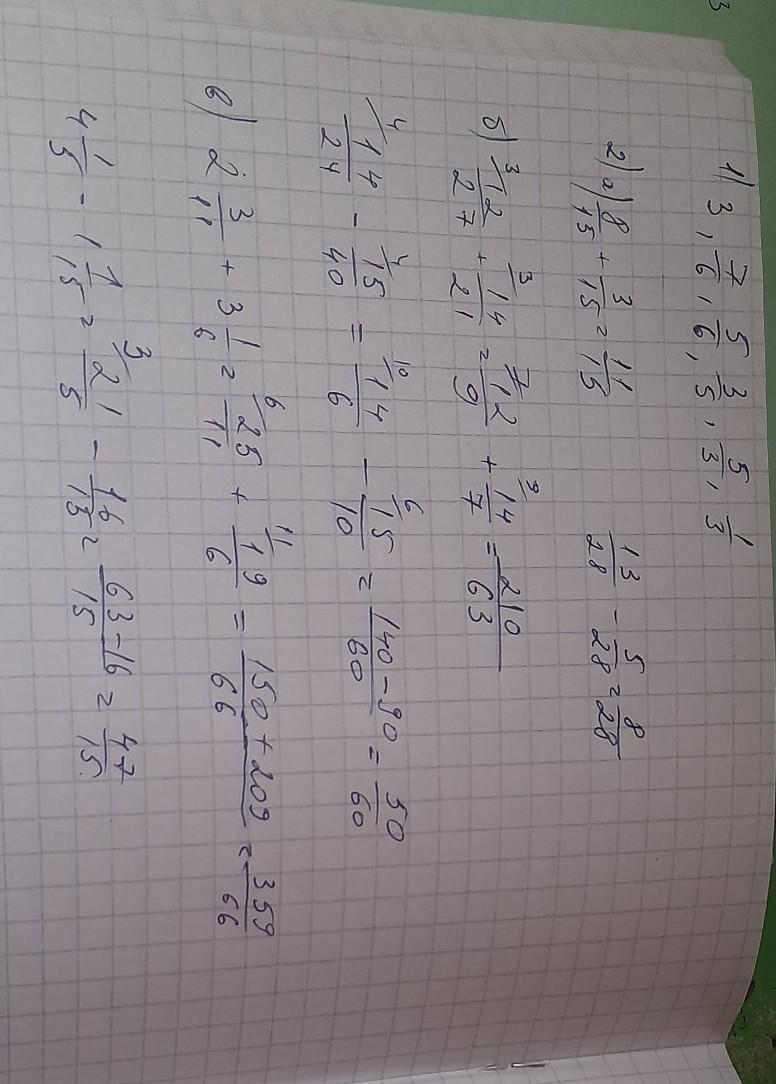 1) 3, 7/6, 5/6, 3/5, 5/3, 1/3
2) а) 8/15 + 3/15 = 11/15    13/28 - 5/28 = 8/28
б) 3/ 12/27 + 3/ 14/21 = 7/ 12/9 + 9/ 14/7 = 210/63
4/ 14/24 - 4/ 15/40 = 10/ 14/6 - 6/ 15/10 = 140-90/60 = 50/60
в) 2 3/11 + 3 1/6 = 6/ 25/11 + 11/ 19/6 = 150+209/66 = 359/66
4 1/5 - 1 1/15 = 3/ 21/5 - 16/15 = 63-16/15 = 47/15